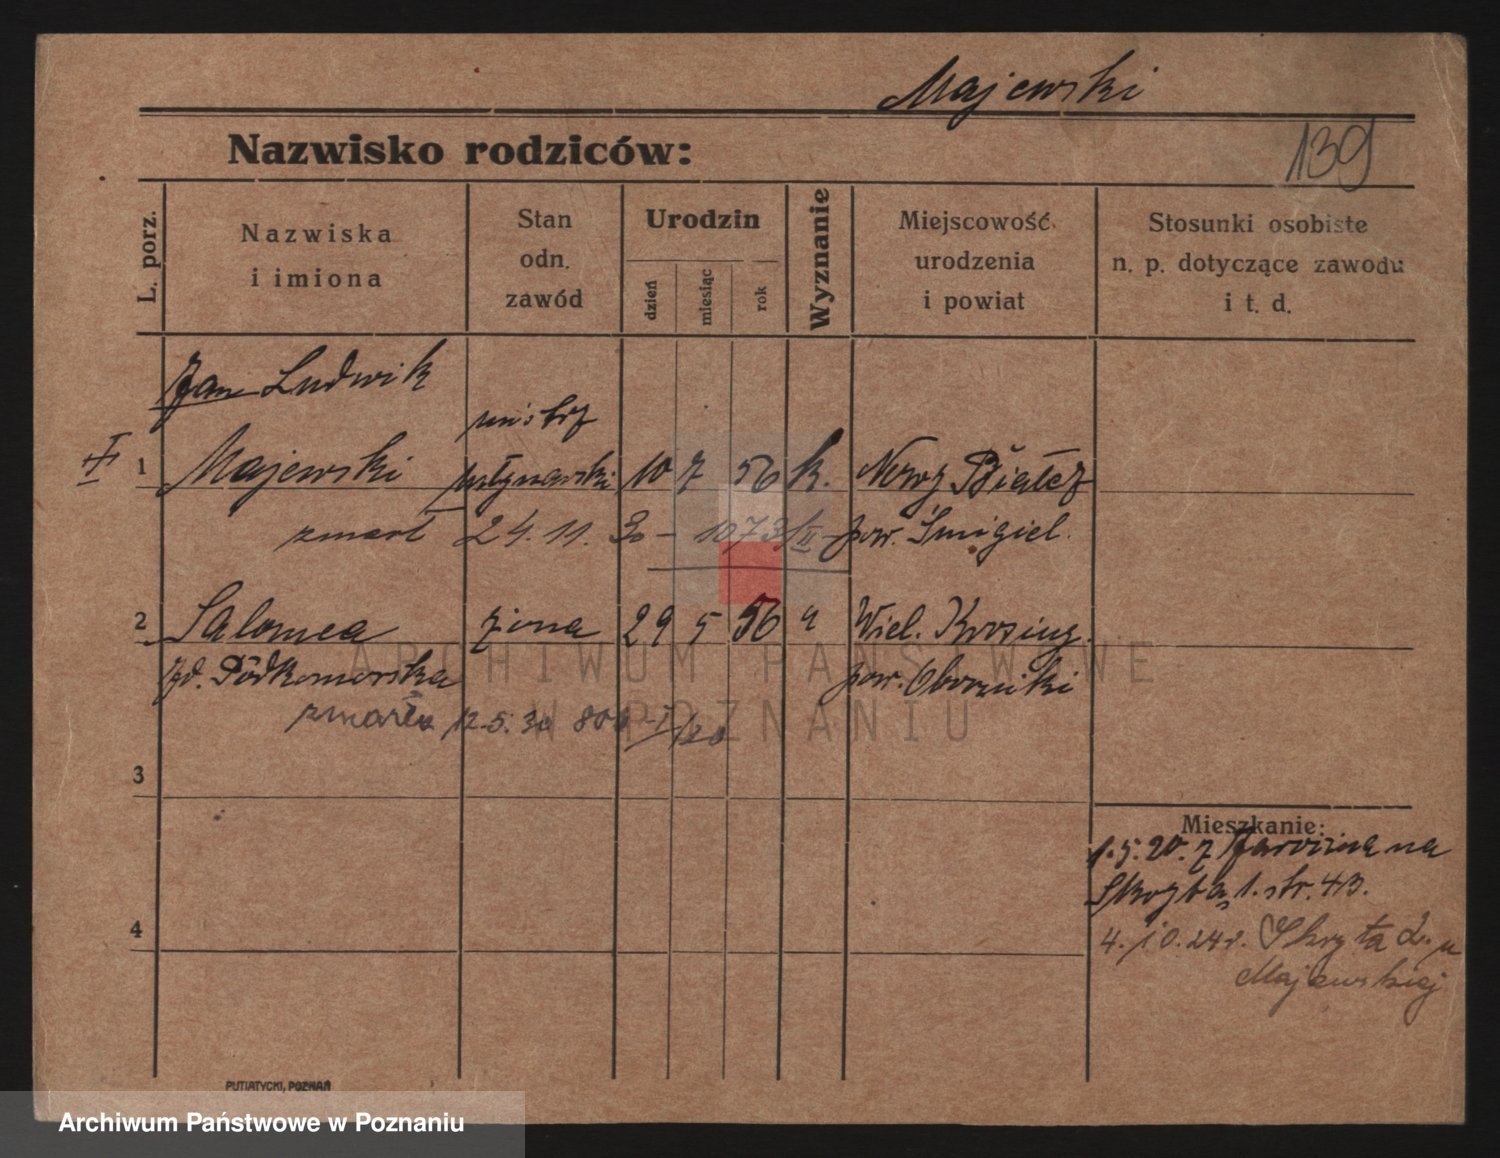 Majewski
139
Nazwisko rodziców:
L. porz.
Nazwiska
i imiona
Stan
odn.
zawód
Urodzin
dzień
miesiąc
rok
Wyznanie
Miejscowość
urodzenia
i powiat
Stosunki osobiste
n. p. dotyczące zawodu
i t. d.
Jan Ludwik
mistrz
1 Majewski młynarski 10 7 56 k. Nowy Białcz
zmarł 24. 11. 30 – 1073/II pow. Śmigiel.
2 Salomea żona 29 5 56 " Wiel. Krosing.
zd. Podkomorska pow. Oborniki
zmarła 12.5.30 I
3
4
Mieszkanie:
1.5.20. z Jarocina na
Skryta 1. str. 43.
4. 10. 24 r. Skryta 2. u
Majewskiej
PUTIATYCKI, POZNAŃ
ARCHIWUM PAŃSTWOWE
W POZNANIU
Archiwum Państwowe w Poznaniu